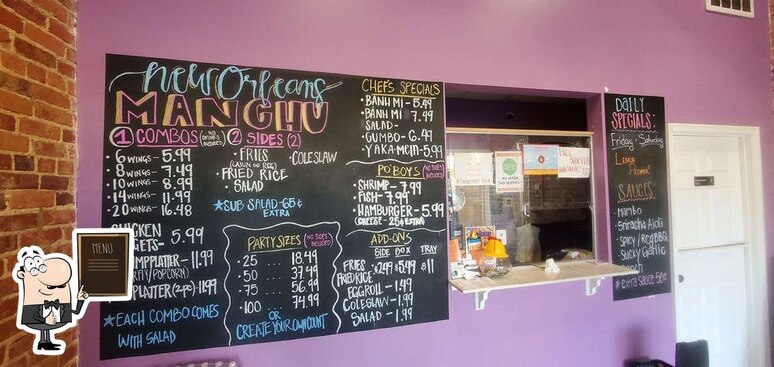 New Orleans
MANCHU
1 COMBOS (NO DRINKS INCLUDED) 2 SIDES (2)
6 WINGS - 5.99
8 WINGS - 7.49
10 WINGS - 8.99
14 WINGS - 11.99
20 WINGS - 16.48
FRIES
(CAJUN OR REG)
FRIED RICE
SALAD
COLESLAW
★SUB SALAD 65¢
EXTRA
CHICKEN
5.99
PLATTER - 11.99
(POPCORN)
PLATTER (2pc) - 11.99
★EACH COMBO COMES
WITH SALAD
PARTY SIZES (NO SIDES INCLUDED)
25 .... 18.49
50 .... 37.49
75 .... 56.99
100 .... 74.99
OR
CREATE YOUR OWN COUNT
CHEF'S SPECIALS
BANH MI - 5.49
BANH MI 7.49
SALAD -
GUMBO - 6.49
YAKA-MEIN - 5.99
PO'BOYS (NO SIDES INCLUDED)
SHRIMP - 7.99
FISH - 7.99
HAMBURGER - 5.99
(CHEESE - 25¢ EXTRA)
ADD-ONS
SIDE BOX TRAY
FRIES $2.49 $5.49 $11
FRIED RICE
EGGROLL - 1.49
COLESLAW - 1.99
SALAD - 1.99
DAILY
SPECIALS:
Friday Saturday
LEMON
PEPPER
SAUCES
Mambo
Sriracha Aioli
Spicy / Red BBQ
Sticky Garlic
Ranch
* extra sauce 50¢
MENU